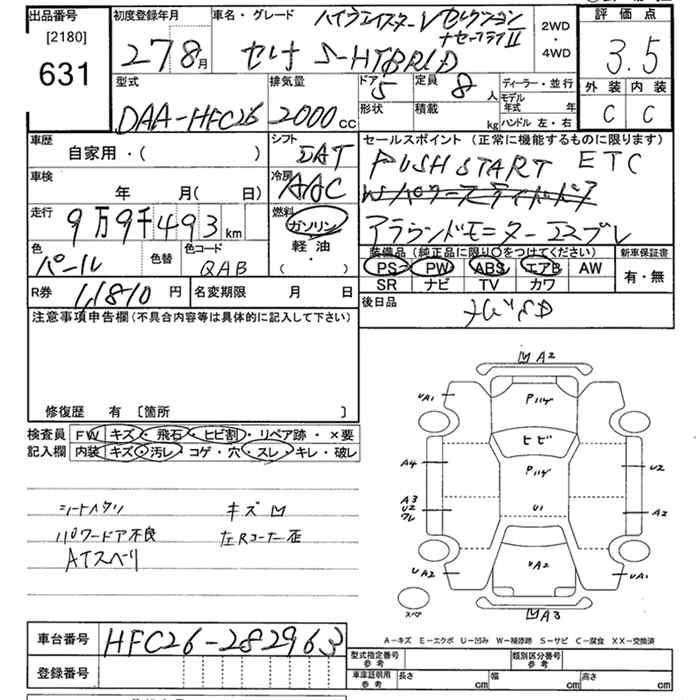 出品番号 初度登録年月 車名・グレード ハイウェイスターV セレクション 評価点
[2180] 27 8月 セレナ S-HYBRID +セーフティII 2WD・4WD 3.5
631
型式 排気量 ドア 5 定員 8人 ディーラー・並行 外装 内装
DAA-HFC26 2000cc 形状 積載 kg モデル年式 年 C C
ハンドル 左・右
車歴 シフト セールスポイント (正常に機能するものに限ります)
自家用・( ) DAT PUSH START ETC
車検 冷房 Wパワースライドドア
年 月( 日) AAC
走行 燃料 アラウンドモニター エマブレ
9万9千493km ガソリン
軽油
・( )
色 色替 色コード 装備品(純正品に限り○をつけてください) 新車保証書
パール QAB PS PW ABS エアB AW 有・無
SR ナビ TV カワ
R券 11,810円 名変期限 月 日 後日品
ナビSD
注意事項申告欄(不具合内容等は具体的に記入して下さい)
修復歴 有 [箇所 ]
検査員 FW キズ・飛石・ヒビ割・リペア跡・×要
記入欄 内装 キズ・汚レ・コゲ・穴・スレ・キレ・破レ
シートヘタリ キズ凹
パワードア不良 左Rコーナー歪
ATスベリ
凹 A2
UA1 Pハゲ
ヒビ
A4 Pハゲ U2
A3
U2 U1 A2
ワレ
UA2 UA2 UA1
スペア 凹 A3
A-キズ E-エクボ U-凹み W-補修跡 S-サビ C-腐食 XX-交換済
車台番号 HFC26-282963 型式指定番号 参考 類別区分番号 参考
登録番号 車庫証明用 参考 長さ cm 幅 cm 高さ cm